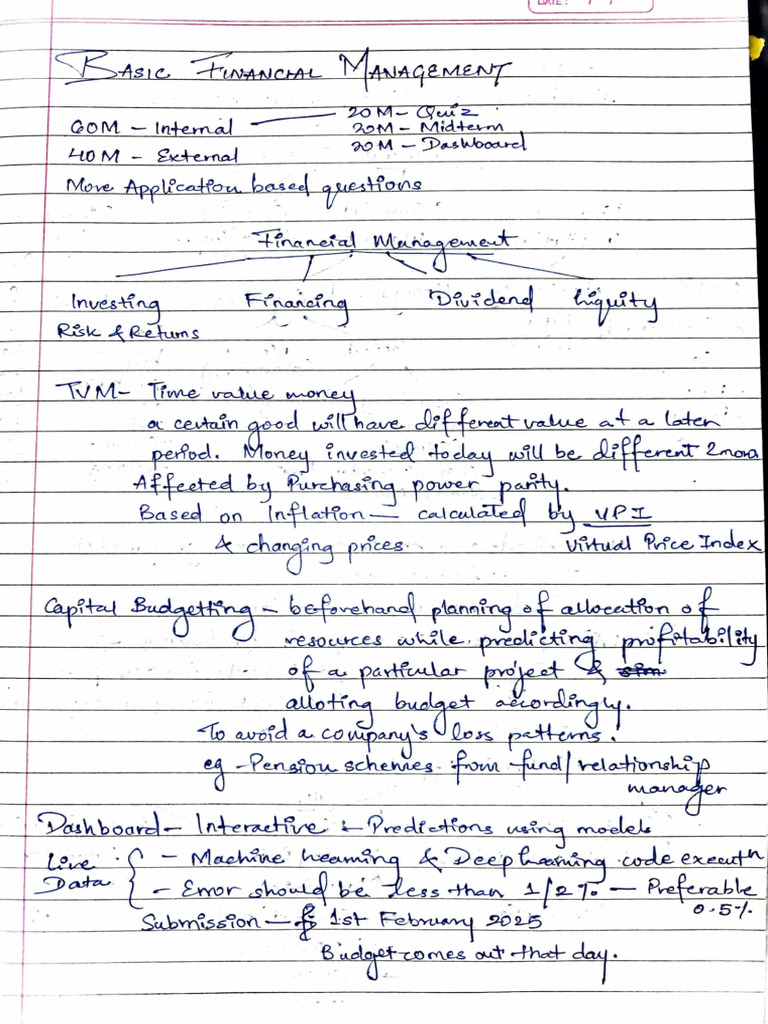 DATE: / /
BASIC FINANCIAL MANAGEMENT
60M - Internal — 20M - Quiz
20M - Midterm
40M - External 20M - Dashboard
More Application based questions
Financial Management
Investing Financing Dividend Liquity
Risk & Returns
TVM - Time value money
a certain good will have different value at a later
period. Money invested today will be different 2moro
Affected by Purchasing power parity.
Based on Inflation — calculated by VPI
& changing prices. Virtual Price Index
Capital Budgetting - beforehand planning of allocation of
resources while predicting profitability
of a particular project &
alloting budget accordingly.
To avoid a company's loss patterns.
eg - Pension schemes from fund/relationship
manager
Dashboard - Interactive & Predictions using models
Live Data { - Machine Learning & Deep Learning code executn
- Error should be less than 1/2% - Preferable
0.5%
Submission - 1st February 2025
Budget comes out that day.